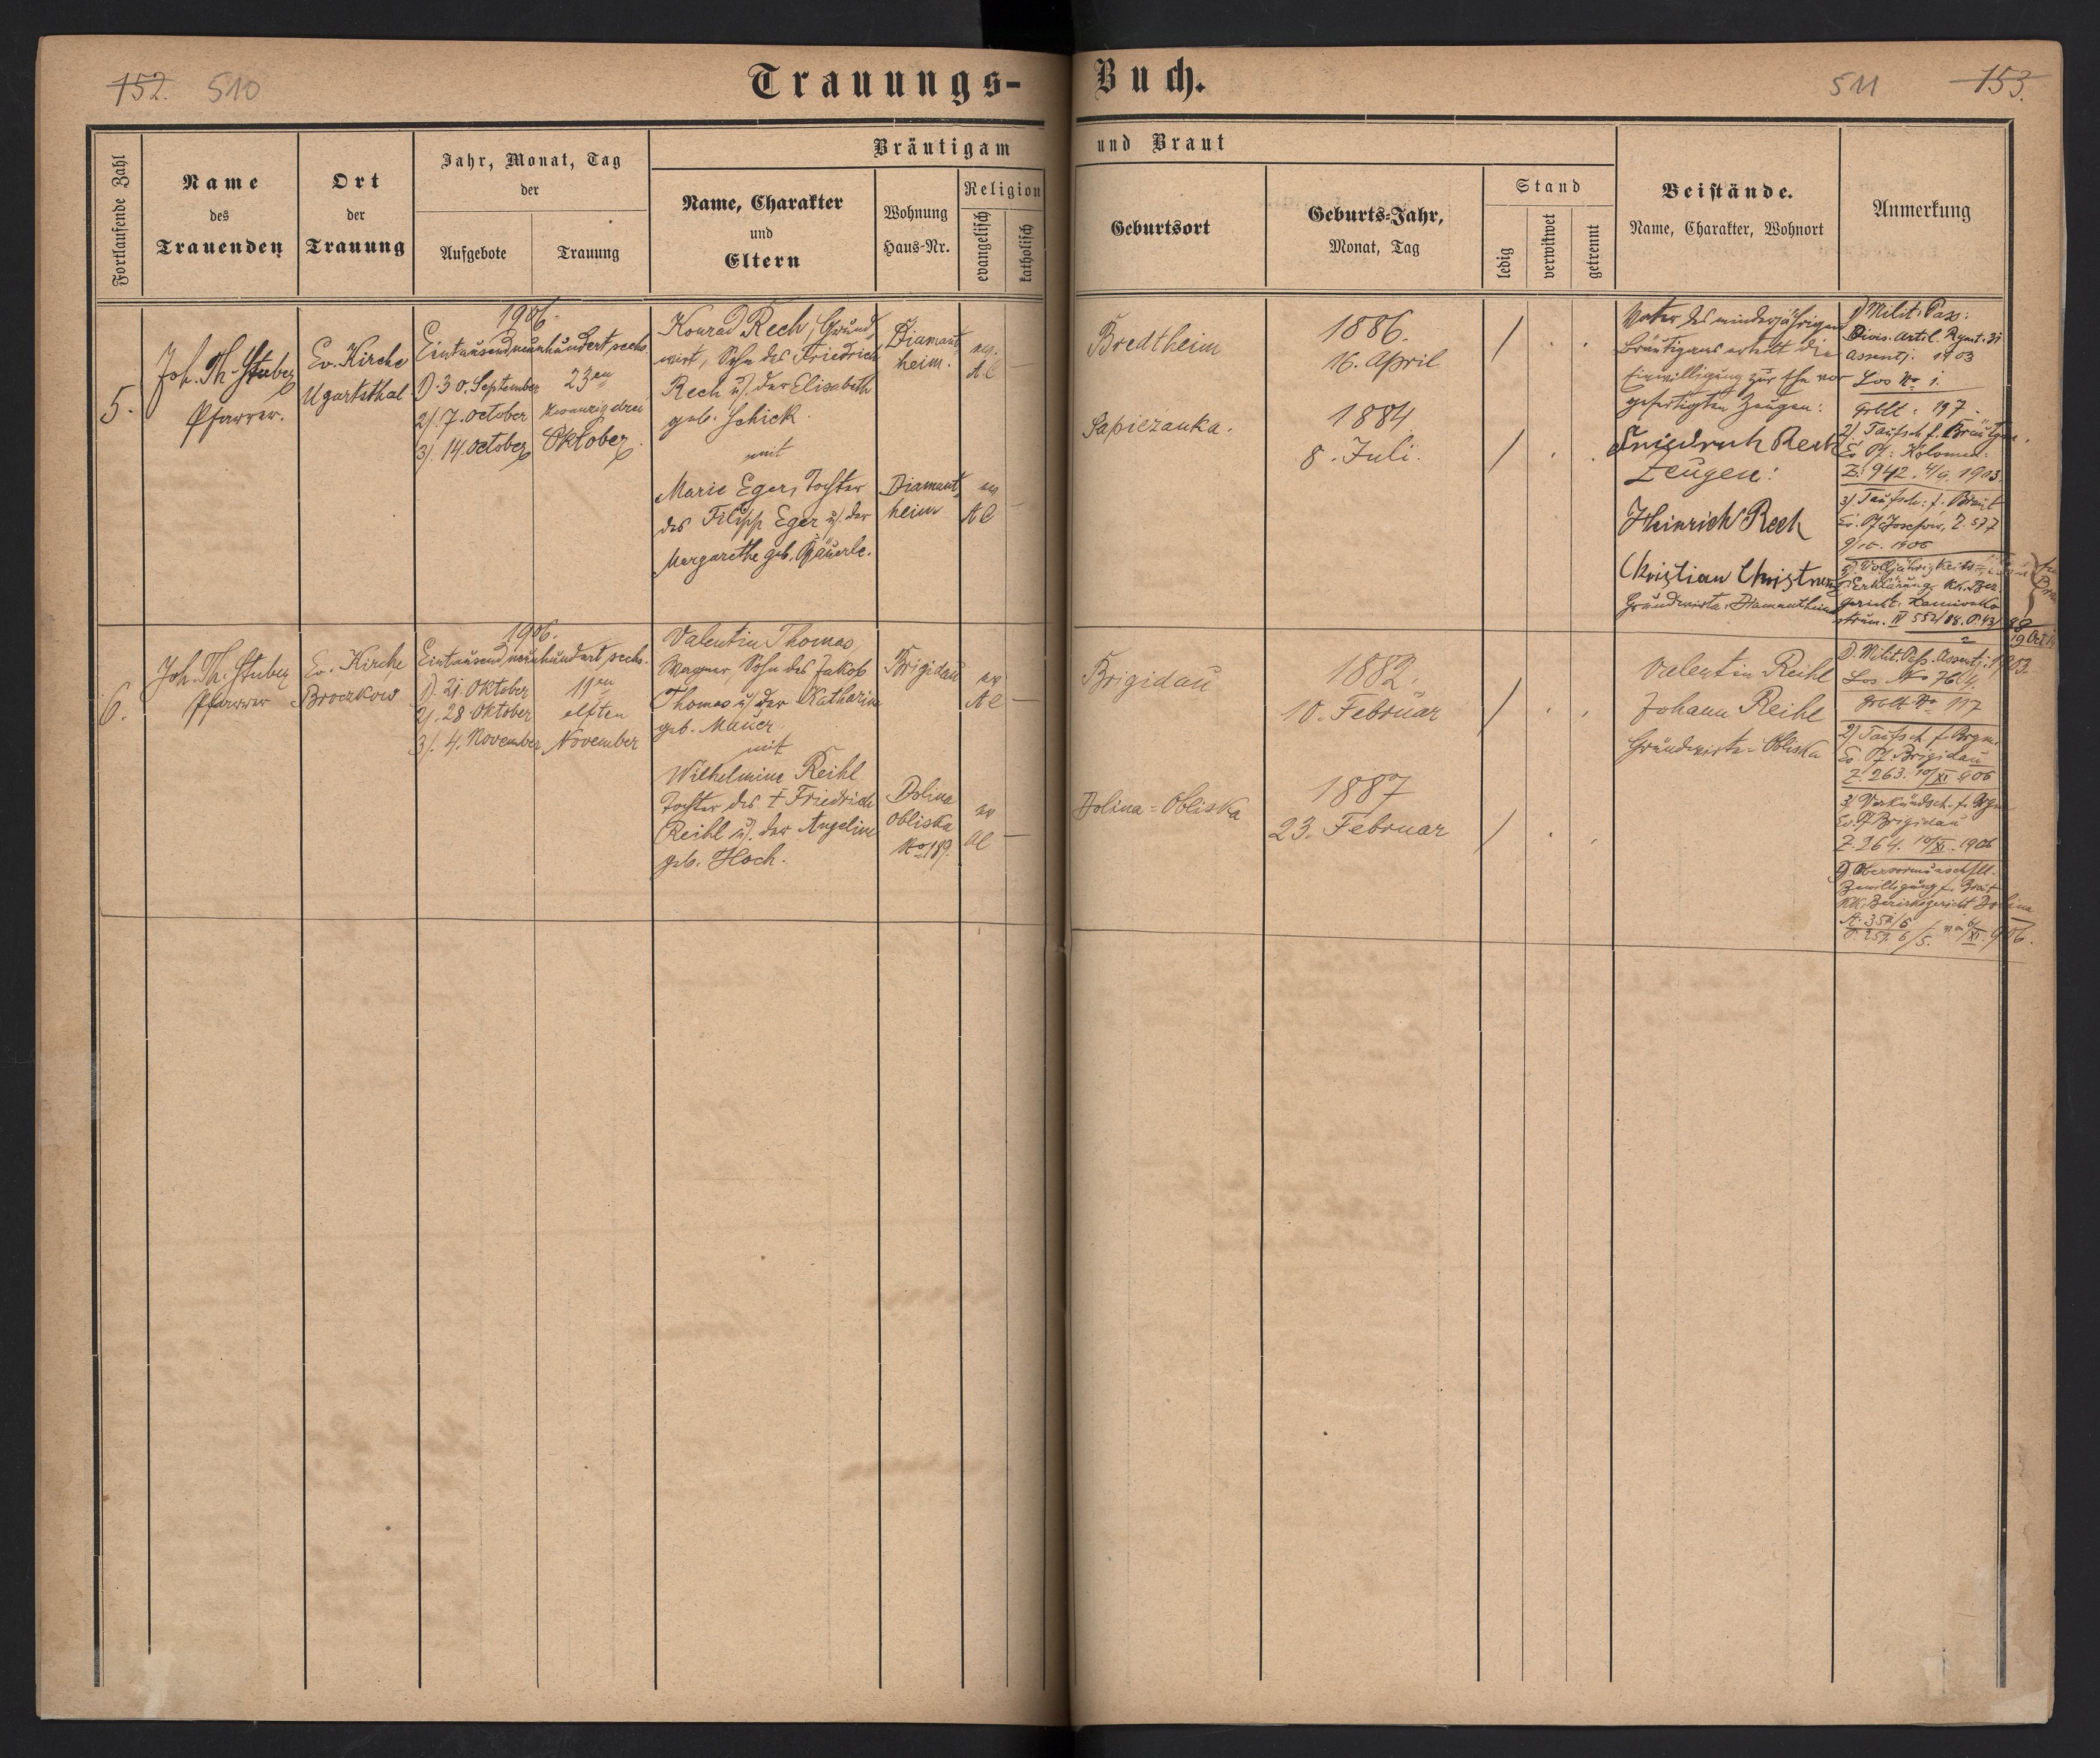 152. 510
Trauungs-
Buch.
511 153.
Fortlaufende Zahl
Name
des
Trauenden
Ort
der
Trauung
Jahr, Monat, Tag
der
Aufgebote
Trauung
Bräutigam
und Braut
Name, Charakter
und
Eltern
Wohnung
Haus-Nr.
Religion
evangelisch
katholisch
Geburtsort
Geburts-Jahr,
Monat, Tag
Stand
ledig
verwitwet
getrennt
Beistände.
Name, Charakter, Wohnort
Anmerkung
5.
Joh. Th. Stuber
Pfarrer.
Ev. Kirche
Ugartsthal
1906.
Eintausendneunhundert sechs.
1). 30. September
2). 7. October
3). 14. October
23en
zwanzig drei
Oktober
Konrad Rech, Grund,
wirt, Sohn des Friedrich
Rech u. der Elisabeth
geb. Schick.
mit
Marie Eger, Tochter
des Filipp Eger u. der
Margarethe geb. Bäuerle.
Diamant,
heim.
ev.
A.C
—
Diamant,
heim
ev
A C
—
Bredtheim
1886.
16. April
/ . .
Sapiezanka.
1884
8. Juli.
/ . .
Vater des minderjährigen
Bräutigams erteilt die
Einwilligung zur Ehe vor
gefertigten Zeugen:
Friedrich Rech
Zeugen:
Heinrich Rech
Christian
Grundwirte, Diamantheim
1) Milit. Pass:
Divis. Artil. Rgmt. 31
Assentj. 1903
Los No 1.
Grbll: 197.
2). Taufsch. f. Bräutgm.
Ev. Pf: Kolomea:
Z: 942. 4/9. 1903
3) Taufsch: f. Braut
Ev. Pf. Josefow, Z. 577
9/10. 1906
Volljährigkeits-
Erklärung Kk. Bez.
gericht. Kamionka
strum. IV 552/88. P. 43/
6.
Joh. Th. Stuber
Pfarrer
Ev. Kirche
Broczkow
1906.
Eintausend neunhundert sechs.
1). 21. Oktober
2). 28. Oktober
3). 4. November
11en
elften
November
Valentin Thomas,
Wagner, Sohn des Jakob
Thomas u. der Katharina
geb. Mauer
mit
Wilhelmine Reihl
Tochter des † Friedrich
Reihl u. der Angeline
geb. Hoch.
Brigidau
ev
A C
—
Dolina
Obliska
No 189.
ev
AC
—
Brigidau
1882.
10. Februar
/ . .
Dolina = Obliska
1887
23. Februar
/ . .
Valentin Reihl
Johann Reihl
Grundwirte = Obliska
1). Milit. Pass. Assentj: 1903.
Los No 764.
Grbll No 117
2) Taufsch. f. Brgm.
Ev. Pf. Brigidau
Z. 263. 10/XI 906
3) Verkündsch. f.
Ev. Pf Brigidau
Z. 264. 10/XI. 1906
Obervormundschftl.
Bewilligung f. Braut
KK. Bezirksgericht Dolina